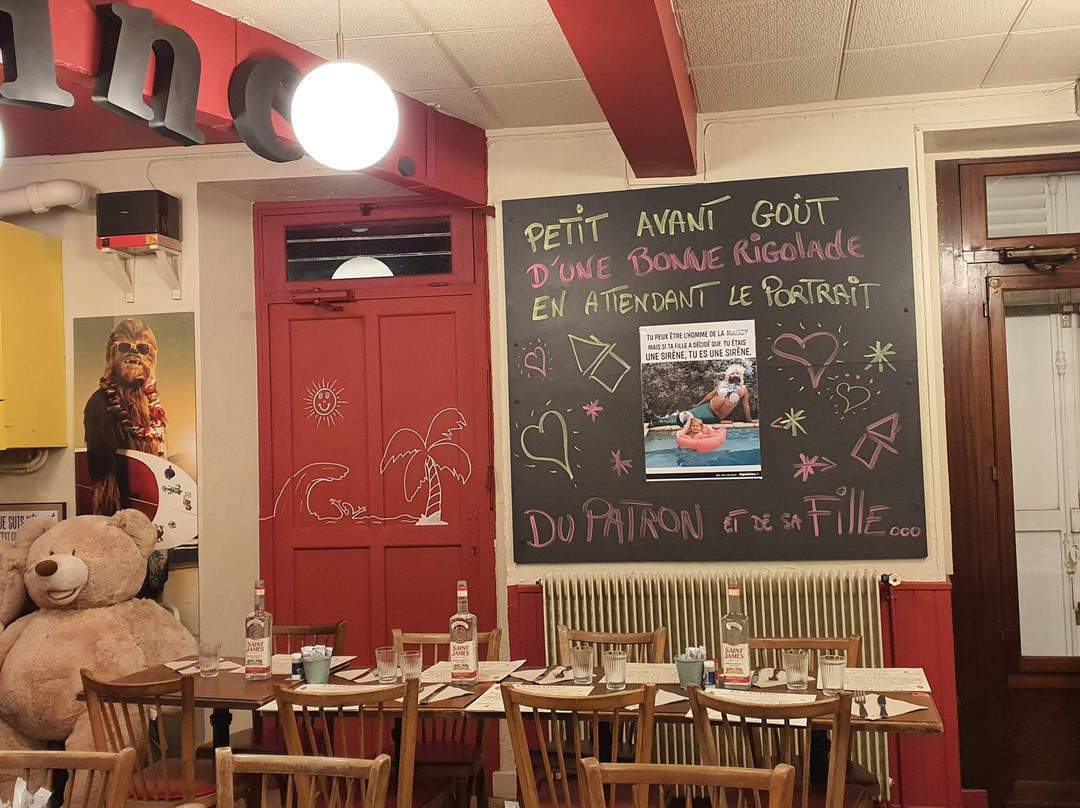 ine
PETIT AVANT GOÛT
D'UNE BONNE RIGOLADE
EN ATTENDANT LE PORTRAIT
TU PEUX ÊTRE L'HOMME DE LA MAISON
MAIS SI TA FILLE A DÉCIDÉ QUE TU ÉTAIS
UNE SIRÈNE, TU ES UNE SIRÈNE.
DU PATRON ET DE SA FILLE...
SAINT
JAMES
SAINT
JAMES
SAINT
JAMES